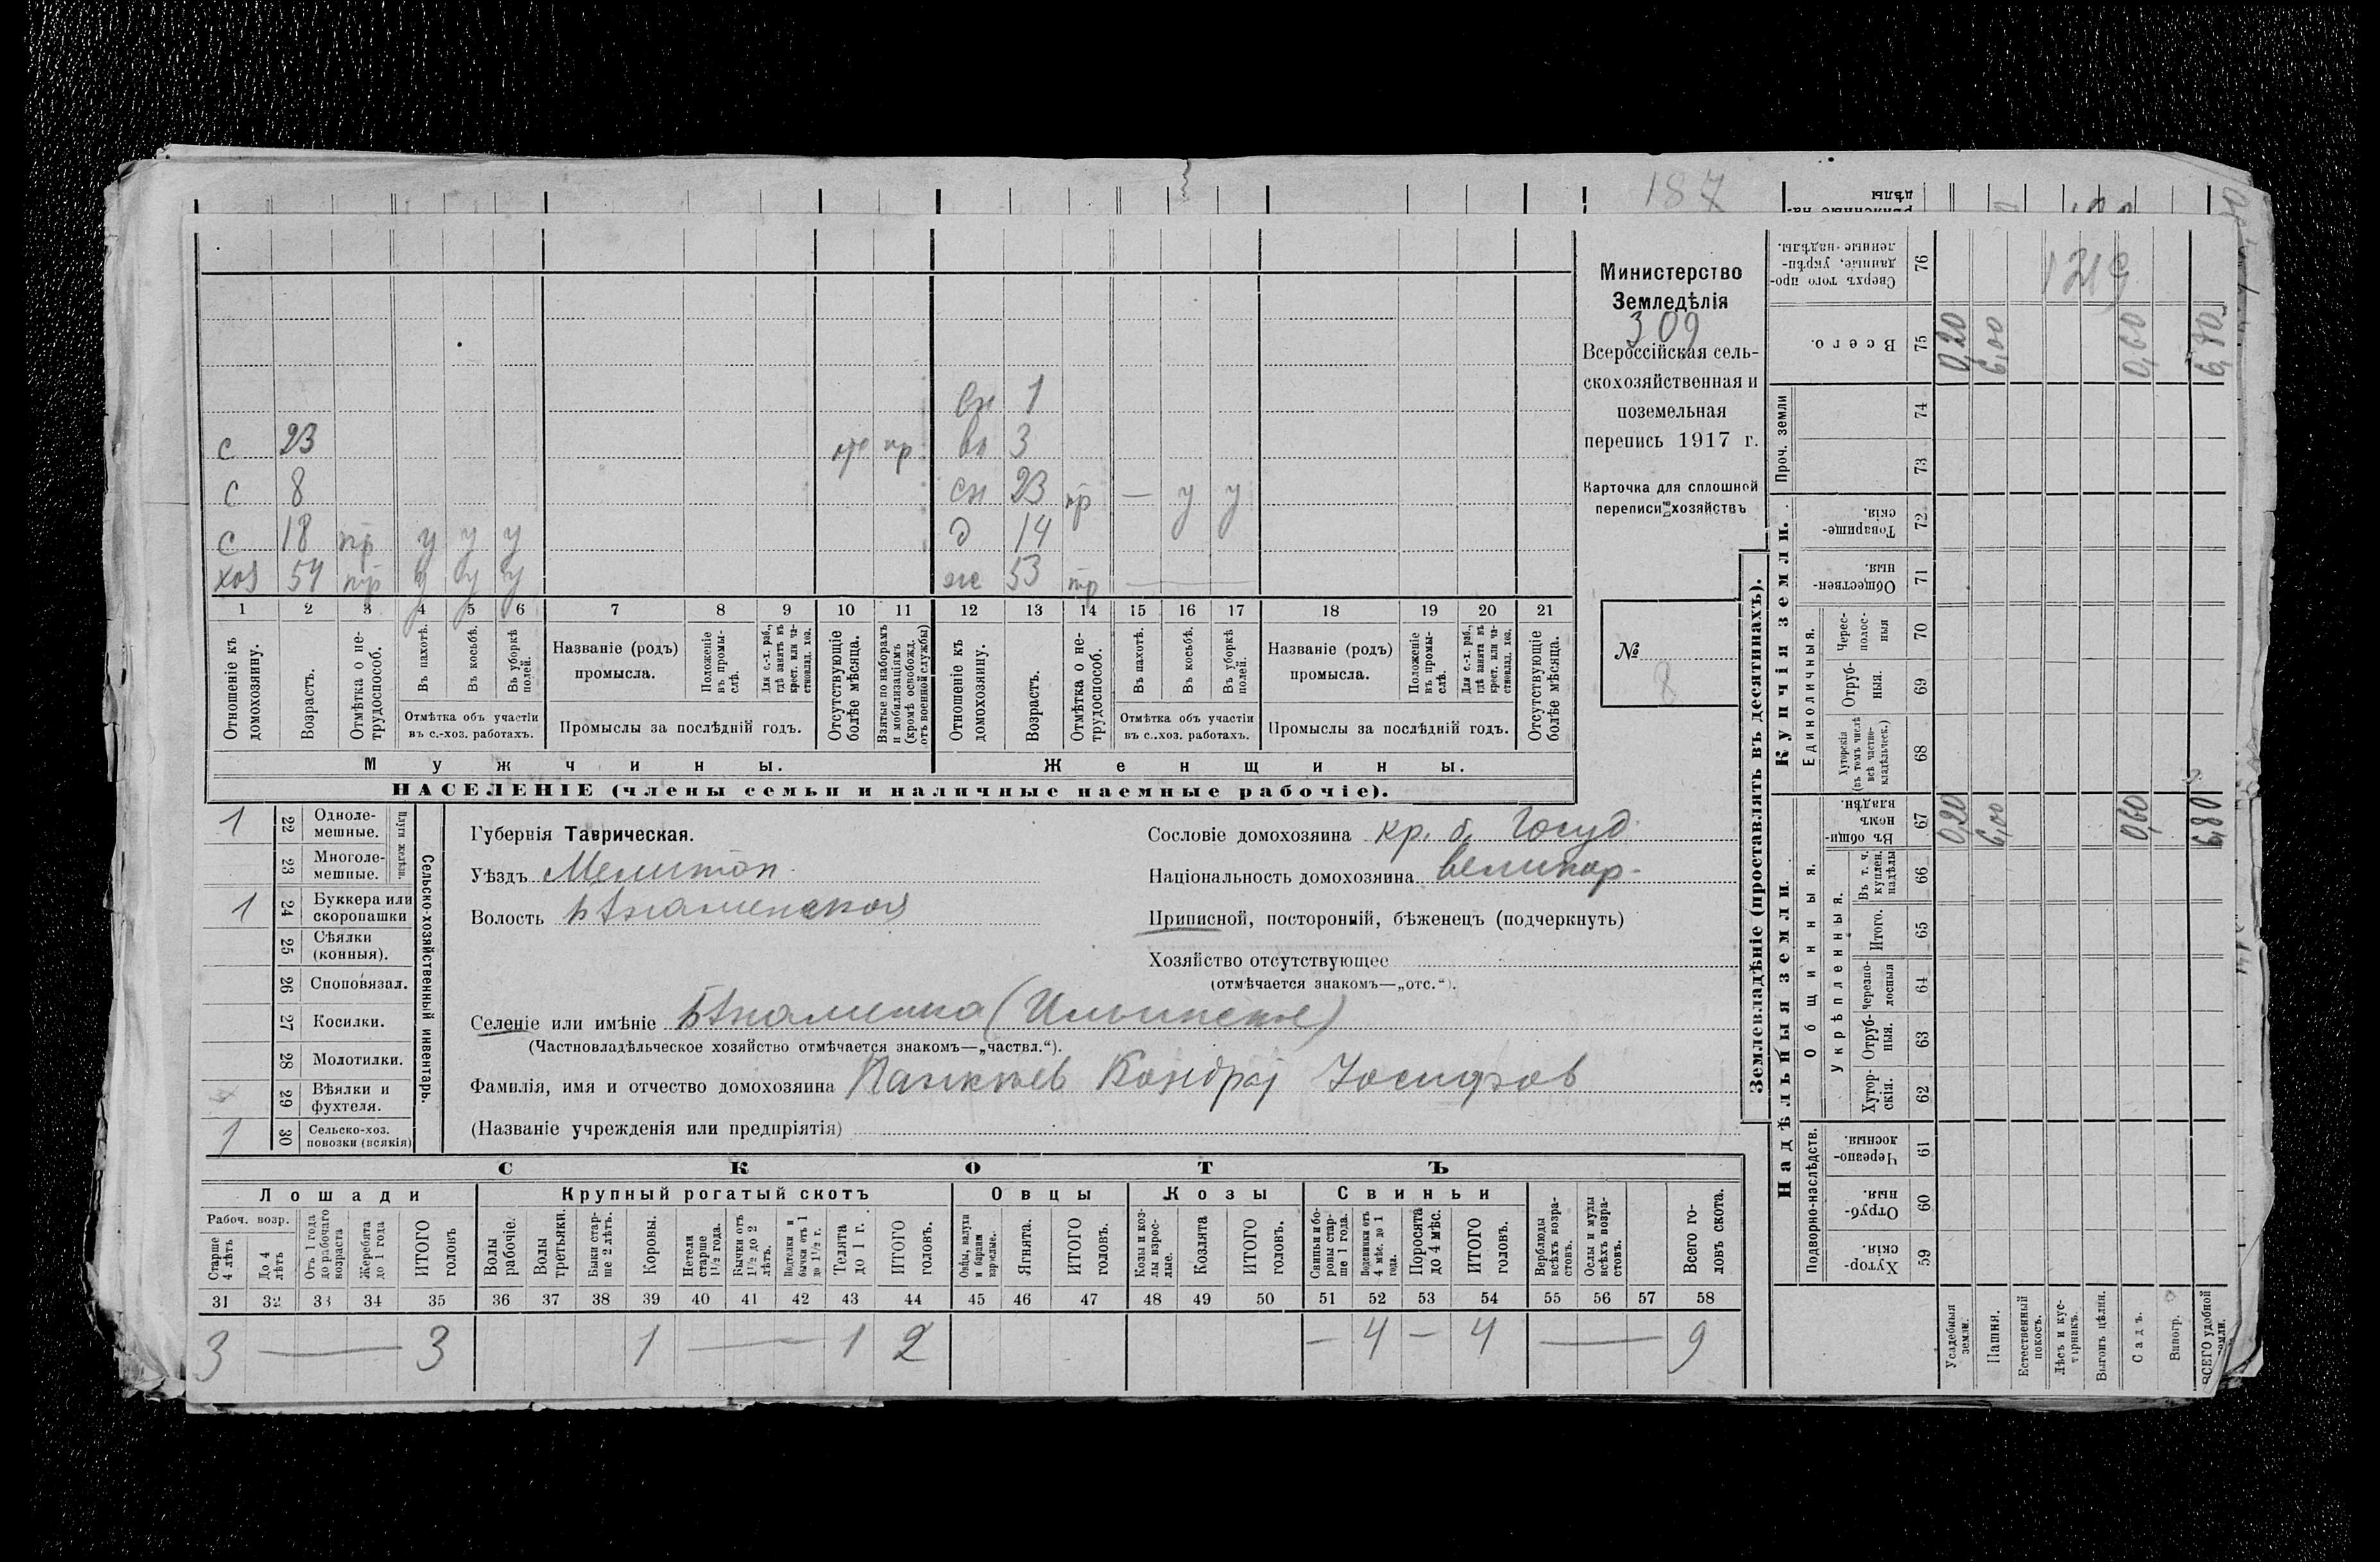 187
Министерство
Земледѣлія
309
Всероссійская сель-
скохозяйственная и
поземельная
перепись 1917 г.
Карточка для сплошной
переписи хозяйствъ
№
8
вн 1
с 23 пр вн 3
с 8 сн 23 нр — у у
с 18 пр у у у д 14
хоз 54 пр у у у же 53 пр —
1 2 3 4 5 6 7 8 9 10 11 12 13 14 15 16 17 18 19 20 21
Отношеніе къ домохозяину.
Возрастъ.
Отмѣтка о не-трудоспособ.
Въ пахотѣ.
Въ косьбѣ.
Въ уборкѣ полей.
Отмѣтка объ участіи
въ с.-хоз. работахъ.
Названіе (родъ)
промысла.
Положеніе въ промы-слѣ.
Для с.-х. раб., гдѣ занятъ въ крест. или ча-стновлад. хоз.
Промыслы за послѣдній годъ.
Отсутствующіе болѣе мѣсяца.
Взятые по наборамъ и мобилизаціямъ (кромѣ освобожд. отъ военной службы)
Отношеніе къ домохозяину.
Возрастъ.
Отмѣтка о не-трудоспособ.
Въ пахотѣ.
Въ косьбѣ.
Въ уборкѣ полей.
Отмѣтка объ участіи
въ с.-хоз. работахъ.
Названіе (родъ)
промысла.
Положеніе въ промы-слѣ.
Для с.-х. раб., гдѣ занята въ крест. или ча-стновлад. хоз.
Промыслы за послѣдній годъ.
Отсутствующіе болѣе мѣсяца.
Мужчины. Женщины.
НАСЕЛЕНІЕ (члены семьи и наличные наемные рабочіе).
1 22 Одноле-мешные.
23 Многоле-мешные.
Плуги желѣзн.
1 24 Буккера или скоропашки
25 Сѣялки (конныя).
26 Сноповязал.
27 Косилки.
28 Молотилки.
29 Вѣялки и фухтеля.
1 30 Сельско-хоз. повозки (всякія)
Сельско-хозяйственный инвентарь.
Губернія Таврическая.
Уѣздъ Мелитоп
Волость Б Знаменская
Сословіе домохозяина кр. б. Госуд
Національность домохозяина великор-
Приписной, посторонній, бѣженецъ (подчеркнуть)
Хозяйство отсутствующее
(отмѣчается знакомъ—„отс.“).
Селеніе или имѣніе Б Знаменка (Ильинское)
(Частновладѣльческое хозяйство отмѣчается знакомъ—„частвл.“).
Фамилія, имя и отчество домохозяина Кондрат Іосифов
(Названіе учрежденія или предпріятія)
СКОТЪ
Лошади Крупный рогатый скотъ Овцы Козы Свиньи
Рабоч. возр.
Старше 4 лѣтъ
До 4 лѣтъ
Отъ 1 года до рабочаго возраста
Жеребята до 1 года
ИТОГО головъ
Волы рабочіе.
Волы третьяки.
Быки стар-ше 2 лѣтъ.
Коровы.
Нетели старше 1½ года.
Бычки отъ 1½ до 2 лѣтъ.
Подтелки и бычки отъ 1 до 1½ г.
Телята до 1 г.
ИТОГО головъ.
Овцы, валухи и бараны взрослые.
Ягнята.
ИТОГО головъ.
Козы и коз-лы взрос-лые.
Козлята
ИТОГО головъ.
Свиньи и бо-ровы стар-ше 1 года.
Подсвинки отъ 4 мѣс. до 1 года.
Поросята до 4 мѣс.
ИТОГО головъ.
Верблюды всѣхъ возра-стовъ.
Ослы и мулы всѣхъ возра-стовъ.
Всего го-ловъ скота.
31 32 33 34 35 36 37 38 39 40 41 42 43 44 45 46 47 48 49 50 51 52 53 54 55 56 57 58
3 — 3 1 — 1 2 — 4 — 4 — 9
Землевладѣніе (проставлять въ десятинахъ).
Надѣльныя земли.
Купчія земли.
Проч. земли
Подворно-наслѣдств.
Общинныя.
Укрѣпленныя.
Единоличныя.
Сверхъ того про-данные, укрѣп-ленные надѣлы. 76
1219
Всего. 75 0,20 6,00 0,60 6,80
74
73
Товарище-скія. 72
Обществен-ныя. 71
Черес-полос-ныя 70
Отруб-ныя. 69
Хуторскія (въ томъ числѣ всѣ частно-владѣльческ.) 68
Въ общин-номъ владѣн. 67 0,20 6,00 0,60 6,80
Въ т. ч. куплен. надѣлы 66
Итого. 65
Черезпо-лосныя 64
Отруб-ныя. 63
Хутор-скія. 62
Черезпо-лосныя. 61
Отруб-ныя. 60
Хутор-скія. 59
Усадебныя земли.
Пашня.
Естественный покосъ.
Лѣсъ и кус-тарникъ.
Выгонъ цѣлин.
Садъ.
Виногр.
ВСЕГО удобной земли.